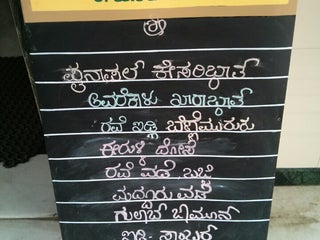 ಶ್ರೀ
ಫೈನಾಪಲ್ ಕೇಸರಿಬ್ಹಾತ್
ಅವರೆಕಾಳು ಖಾರಾಬ್ಹಾತ್
ರವೆ ಇಡ್ಲಿ
ಈರುಳ್ಳಿ ದೋಸೆ
ರವೆ ವಡೆ
ಮದ್ದೂರು ವಡೆ
ಗುಲಾಬ್ ಜಾಮೂನ್
ಇಡ್ಲಿ ಸಾಂಬಾರ್